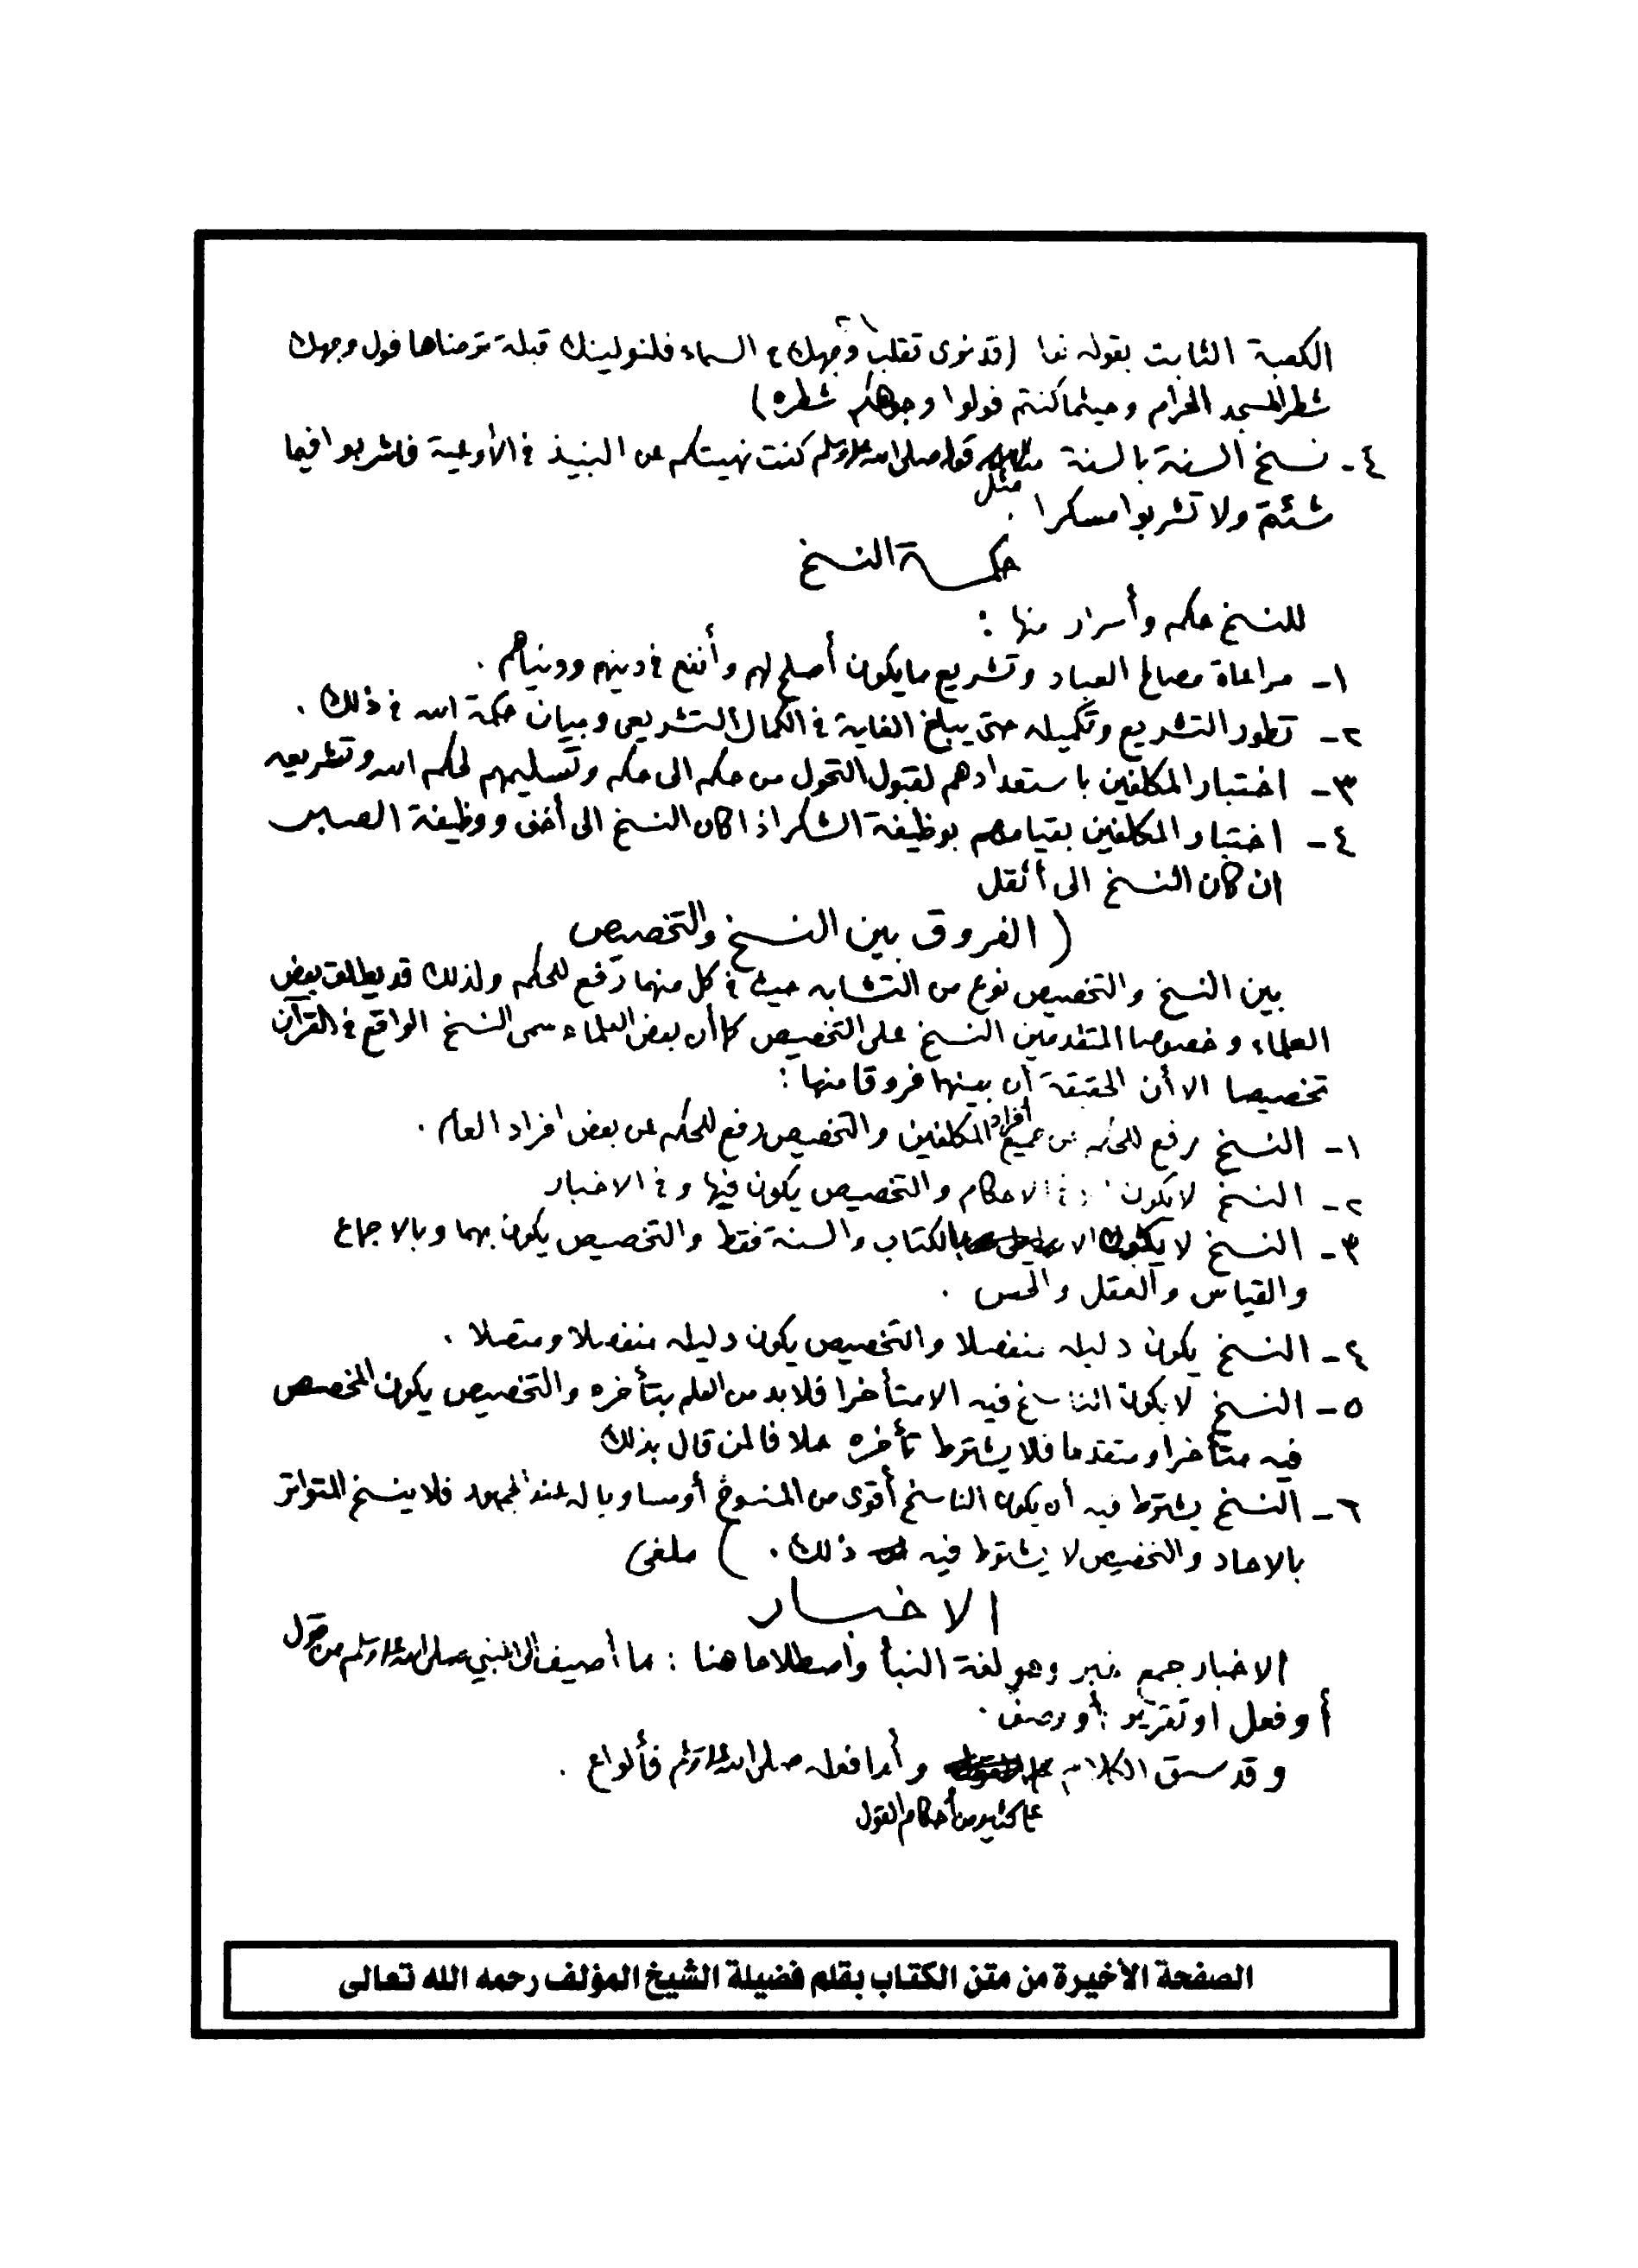 الكعبة الثابت بقوله تعا (قد نرى تقلب وجهك في السماء فلنولينك قبلة ترضاها فول وجهك
شطر المسجد الحرام وحيثما كنتم فولوا وجوهكم شطره)
٤ـ نسخ السنة بالسنة مثل قوله صلى الله عليه وسلم كنت نهيتكم عن النبيذ في الأوعية فاشربوا فيما
شئتم ولا تشربوا مسكرا.
حكمة النسخ
للنسخ حكم وأسرار منها:
١ـ مراعاة مصالح العباد وتشريع ما يكون أصلح لهم وأنفع في دينهم ودنياهم.
٢ـ تطور التشريع وتكميله حتى يبلغ الغاية في الكمال التشريعي وبيان حكمة الله في ذلك.
٣ـ اختبار المكلفين باستعدادهم لقبول التحول من حكم الى حكم وتسليمهم لحكم الله وتشريعه
٤ـ اختبار المكلفين بقيامهم بوظيفة الشكر اذا كان النسخ الى أخف ووظيفة الصبر
ان كان النسخ الى أثقل
(الفروق بين النسخ والتخصيص
بين النسخ والتخصيص نوع من التشابه حيث في كل منهما رفع للحكم ولذلك قد يطلق بعض
العلماء وخصوصا المتقدمين النسخ على التخصيص كما أن بعض العلماء سمى النسخ الواقع في القرآن
تخصيصا الا أن الحقيقة أن بينهما فروقا منها:
١ـ النسخ رفع للحكم عن جميع أفراد المكلفين والتخصيص رفع للحكم عن بعض افراد العام.
٢ـ النسخ لا يكون في الاحكام والتخصيص يكون فيها وفي الاخبار
٣ـ النسخ لا يكون الا بالكتاب والسنة فقط والتخصيص يكون بهما وبالاجماع
والقياس والعقل والحس.
٤ـ النسخ يكون دليله منفصلا والتخصيص يكون دليله منفصلا ومتصلا.
٥ـ النسخ لا يكون الناسخ فيه الا متأخرا فلابد من العلم بتأخره والتخصيص يكون المخصص
فيه متأخرا ومتقدما فلا يشترط تأخره خلافا لمن قال بذلك
٦ـ النسخ يشترط فيه أن يكون الناسخ أقوى من المنسوخ أو مساويا له عند الجمهور فلا ينسخ المتواتر
بالاحاد والتخصيص لا يشترط فيه ذلك.) ملغى
الاخبار
الاخبار جمع خبر وهو لغة النبأ واصطلاحا هنا: ما أضيف الى النبي صلى الله عليه وسلم من قول
أو فعل او تقرير أو وصف.
وقد سبق الكلام وأما فعله صلى الله عليه وسلم فأنواع.
على كثير من أحكام القول
الصفحة الأخيرة من متن الكتاب بقلم فضيلة الشيخ المؤلف رحمه الله تعالى